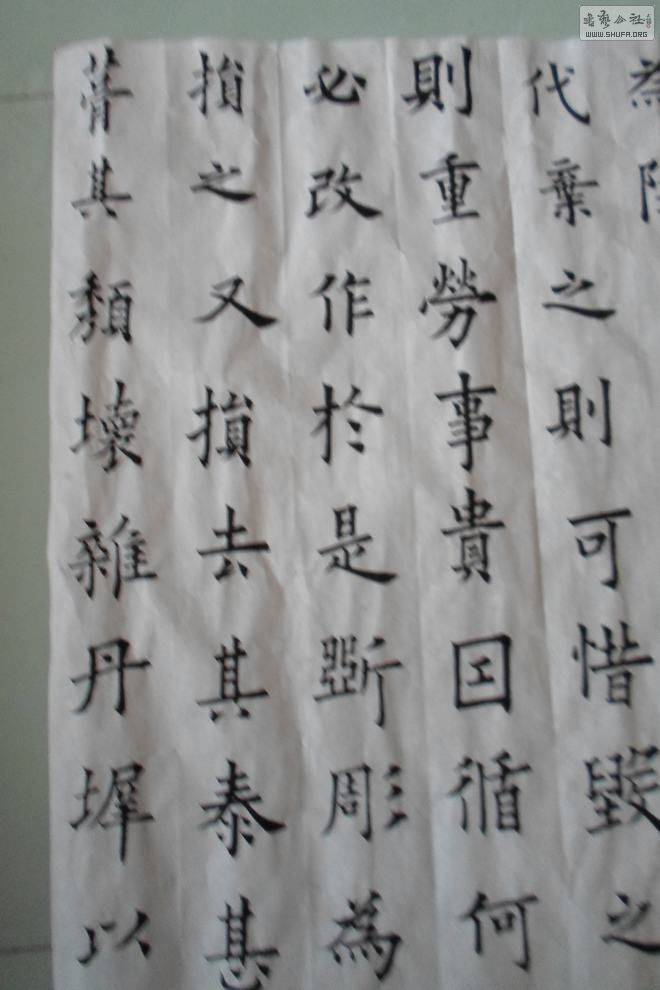 書藝公社
WWW.SHUFA.ORG
為
代棄之則可惜毀之
則重勞事貴囙循何
必改作於是斲彫為
損之又損去其泰甚
葺其頹壞雜丹墀以